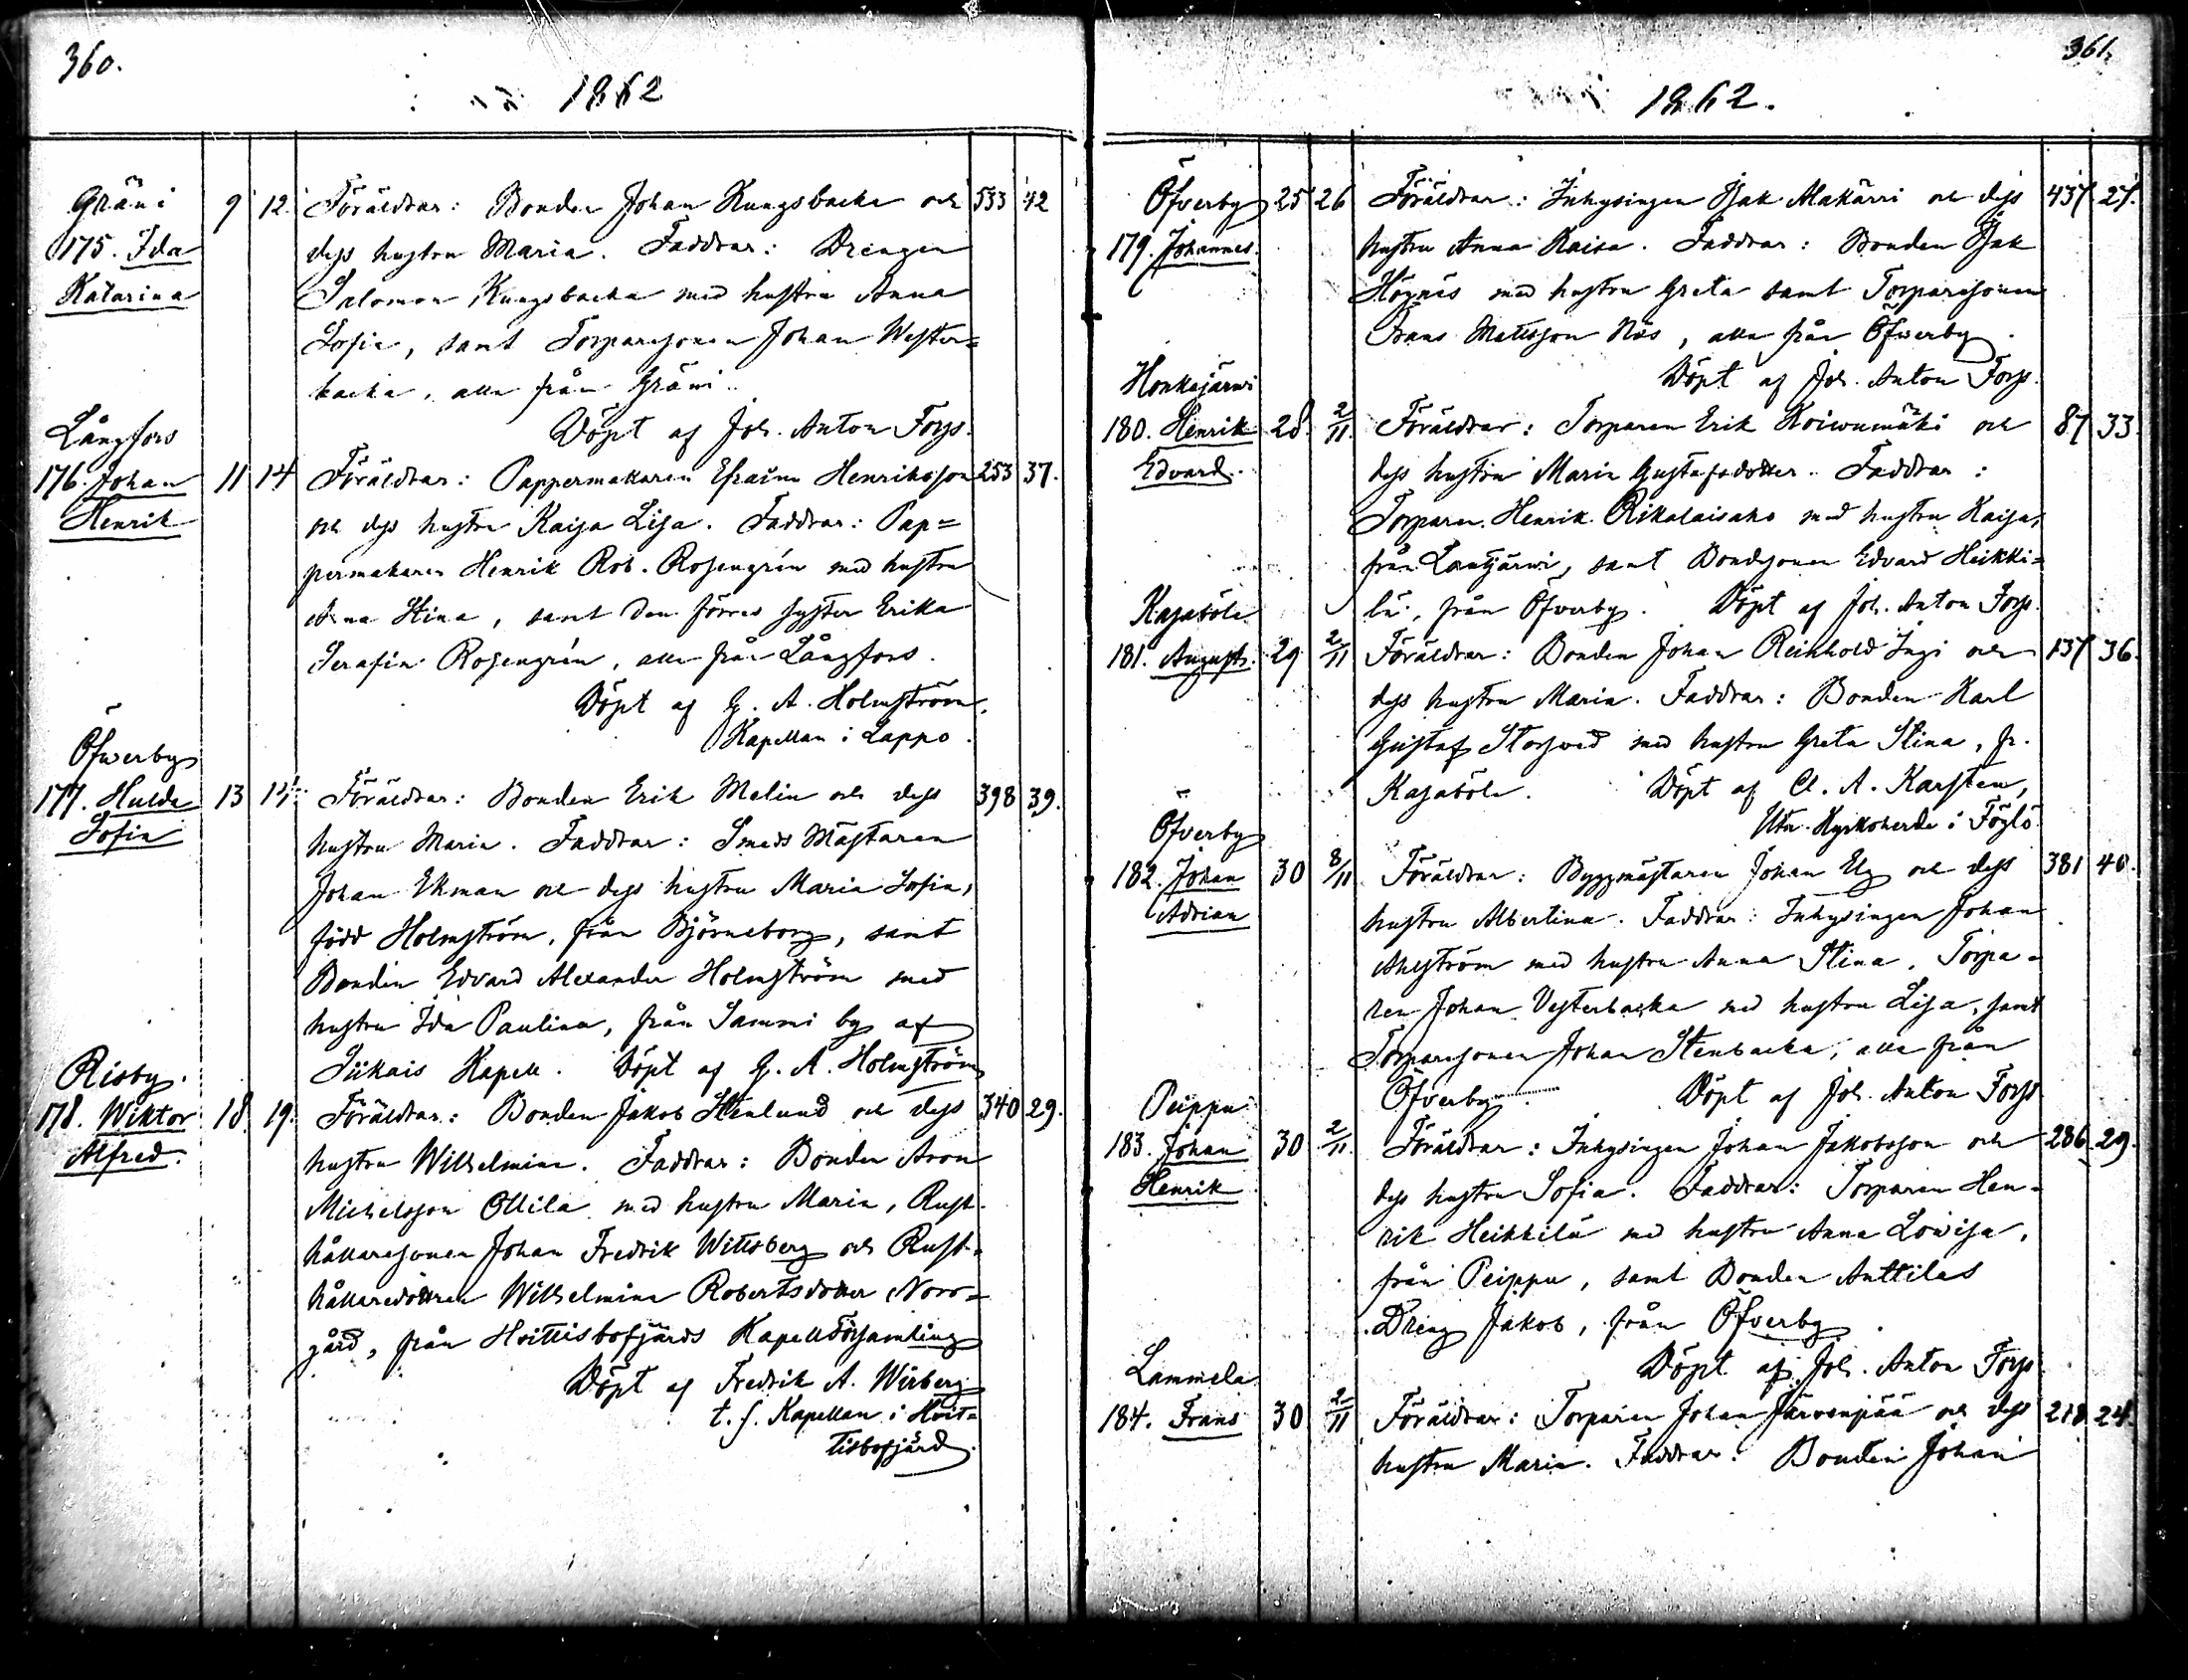 360.
1862
Gräni
175. Ida
Katarina
9 12. Föräldrar: Bonden Johan Kungsbacka och 533 42
dess hustru Maria. Faddrar: Drengen
Salomon Kungsbacka med hustru Anna
Sofia, samt Torparesonen Johan Wester=
backa, alla från Gräni.
Döpt af Joh. Anton Forss.
Långfors
176. Johan
Henrik
11 14 Föräldrar: Pappermakaren Efraim Henriksson 253 37.
och dess hustru Kaisa Lisa. Faddrar: Pap=
permakaren Henrik Rob. Rosengrén med hustru
Anna Stina, samt den förres syster Erika
Serafia Rosengrén, alla från Långfors.
Döpt af G. A. Holmström,
Kapellan i Lappo.
Öfwerby
177. Hulda
Sofia
13 Föräldrar: Bonden Erik Malin och dess 398 39.
hustru Maria. Faddrar: Smeds Mästaren
Johan Ekman och dess hustru Maria Sofia,
född Holmström, från Björneborg, samt
Bonden Edvard Alexander Holmström med
hustru Ida Paulina, från Sammi by af
Siikais Kapell. Döpt af G. A. Holmström
Risby.
178. Wiktor
Alfred.
18 19. Föräldrar: Bonden Jakob Stenlund och dess 340 29.
hustru Wilhelmina. Faddrar: Bonden Aron
Michelsson Ollila med hustru Maria, Rust-
hållaresonen Johan Fredrik Wittsberg och Rust-
hållaredottren Wilhelmina Robertsdotter Norr=
gård, från Hvittisbofjärds Kapellförsamling
Döpt af Fredrik A. Wirberg
t. f. Kapellan i Hvit=
tisbofjärd.
361.
1862.
Öfverby
179. Johannes.
25 26 Föräldrar: Inhysingen Isak Makärri och dess 437 27.
hustru Anna Kaisa. Faddrar: Bonden Isak
Högnäs med hustru Greta samt Torparesonen
Frans Mattsson Näs, alla från Öfwerby.
Döpt af Joh. Anton Forss.
Honkajärwi
180. Henrik
Edvard.
28. 2/11. Föräldrar: Torparen Erik Koiwumäki och 87 33.
dess hustru Maria Gustafsdotter. Faddrar:
Torparen Henrik Rikalaisaho med hustru Kaisa,
från Lautjärwi, samt Bondsonen Edvard Heikki=
lä, från Öfverby. Döpt af Joh. Anton Forss.
Kasaböle
181. August.
29 2/11 Föräldrar: Bonden Johan Reinhold Ingi och 137 36.
dess hustru Maria. Faddrar: Bonden Karl
Gustaf Storsved med hustru Greta Stina, fr.
Kasaböle. Döpt af Cl. A. Karsten,
Utn. Kyrkoherde i Föglö
Öfverby
182. Johan
Adrian
30 8/11 Föräldrar: Byggmästaren Johan Elg och dess 381 40.
hustru Albertina. Faddrar: Inhysingen Johan
Ahlström med hustru Anna Stina, Torpa=
ren Johan Vesterbacka med hustru Lisa, samt
Torparesonen Johan Stenbacka, alla från
Öfverby. Döpt af Joh. Anton Forss
Peippu
183. Johan
Henrik
30 2/11. Föräldrar: Inhysingen Johan Jakobsson och 286 29.
dess hustru Sofia. Faddrar: Torparen Hen=
rik Heikkilä med hustru Anna Lowisa,
från Peippu, samt Bonden Anttilas
Dreng Jakob, från Öfverby.
Döpt af Joh. Anton Forss
Lammela
184. Frans
30 2/11 Föräldrar: Torparen Johan Järvenpää och dess 218 24.
hustru Maria. Faddrar: Bonden Johan